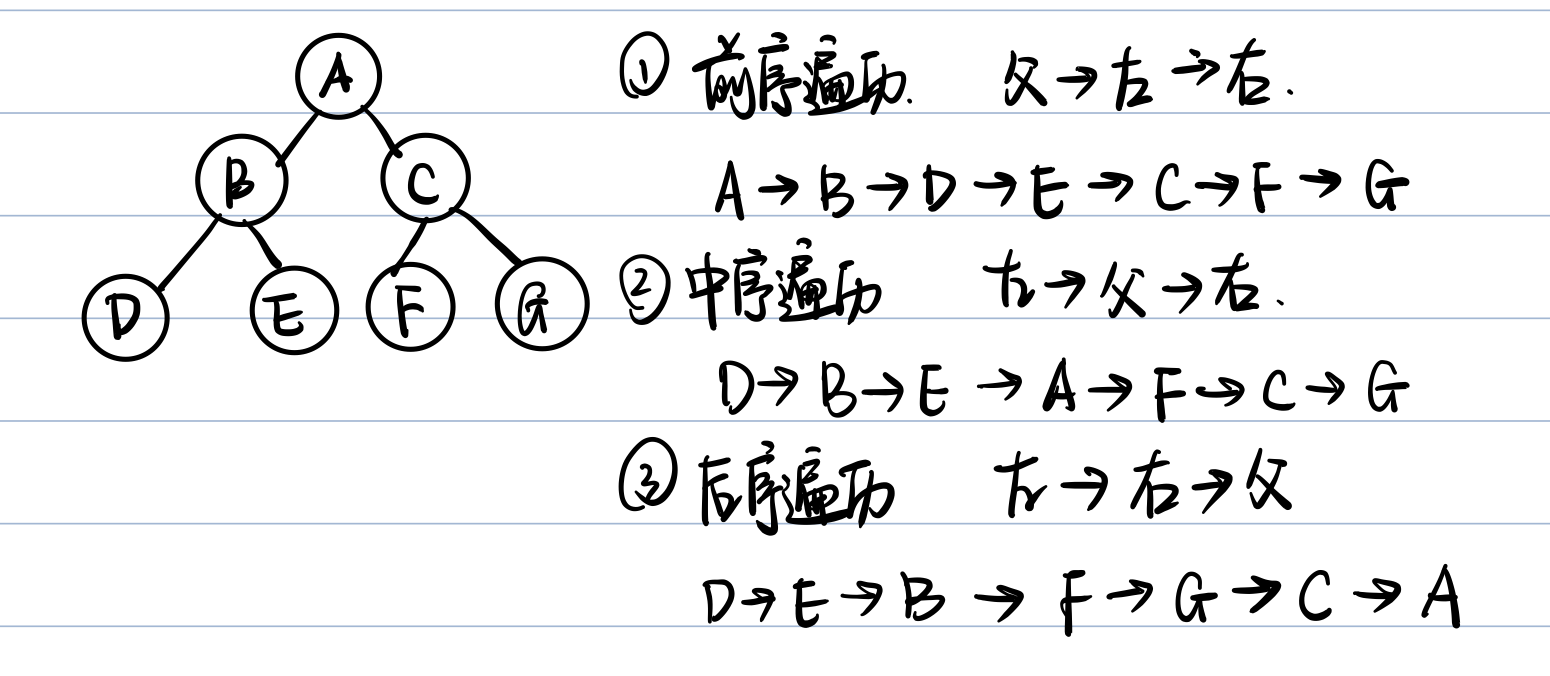 A
B C
D E F G
① 前序遍历. 父→左→右.
A→B→D→E→C→F→G
② 中序遍历 左→父→右.
D→B→E→A→F→C→G
③ 后序遍历 左→右→父
D→E→B→F→G→C→A